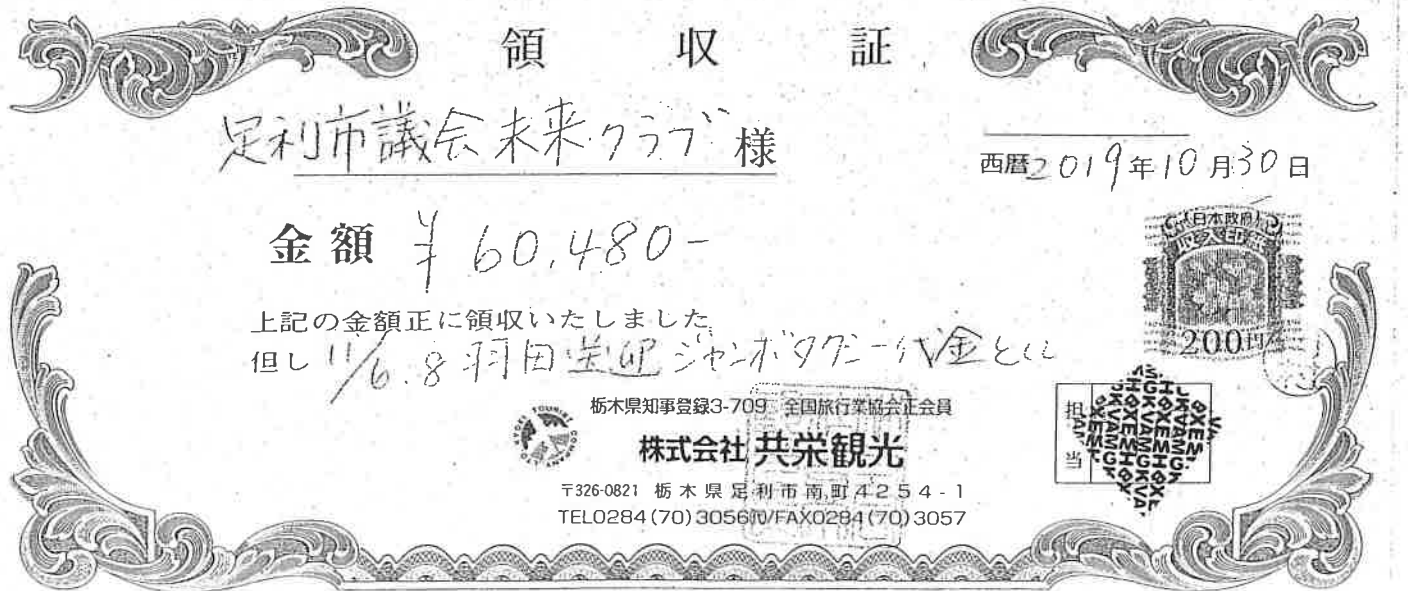 領収証
足利市議会未来クラブ 様
西暦2019年10月30日
金額 ¥60,480-
日本政府
収入印紙
200円
上記の金額正に領収いたしました
但し 11/6.8 羽田送迎ジャンボタクシー代金とし
栃木県知事登録3-709 全国旅行業協会正会員
株式会社 共栄観光
担当
〒326-0821 栃木県足利市南町4254-1
TEL0284(70)3056㈹/FAX0284(70)3057